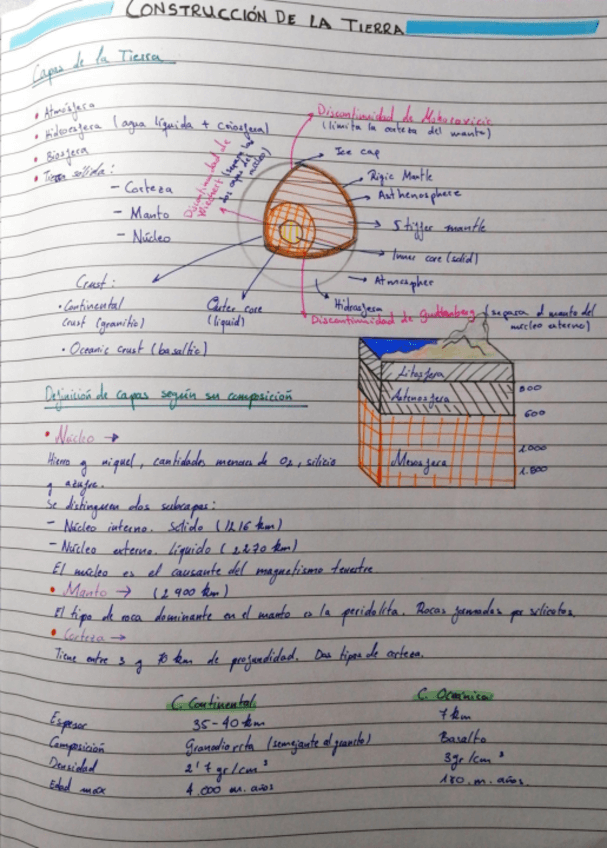 CONSTRUCCIÓN DE LA TIERRA
Capas de la Tierra
• Atmósfera
• Hidrosfera (agua líquida + criosfera)
• Biosfera
• Tierra sólida:
- Corteza
- Manto
- Núcleo
Discontinuidad de Mohorovicic
(limita la corteza del manto)
Discontinuidad de
Wiechert (separa las
dos capas del
núcleo)
Ice cap
Rigic Mantle
Asthenosphere
Stiffer mantle
Inner core (solid)
Atmospher
Hidrosfera
Discontinuidad de Guttenberg (separa el manto del
núcleo externo)
Crust:
• Continental
crust (granitic)
• Oceanic crust (basaltic)
Outer core
(liquid)
Litosfera
Astenosfera
Mesosfera
600
1.000
1.800
Definición de capas según su composición
• Núcleo →
Hierro y niquel, cantidades menores de O₂, silicio
y azufre.
Se distinguen dos subcapas:
- Núcleo interno. Sólido (1216 km)
- Núcleo externo. Líquido (2270 km)
El núcleo es el causante del magnetismo terrestre
• Manto → (2900 km)
El tipo de roca dominante en el manto es la peridotita. Rocas formadas por silicatos.
• Corteza →
Tiene entre 3 y 70 km de profundidad. Dos tipos de corteza.
C. Continental C. Oceánica
Espesor 35-40 km 7 km
Composición Granodiorita (semejante al granito) Basalto
Densidad 2'7 gr/cm³ 3gr/cm³
Edad max 4.000 m. años 180. m. años.